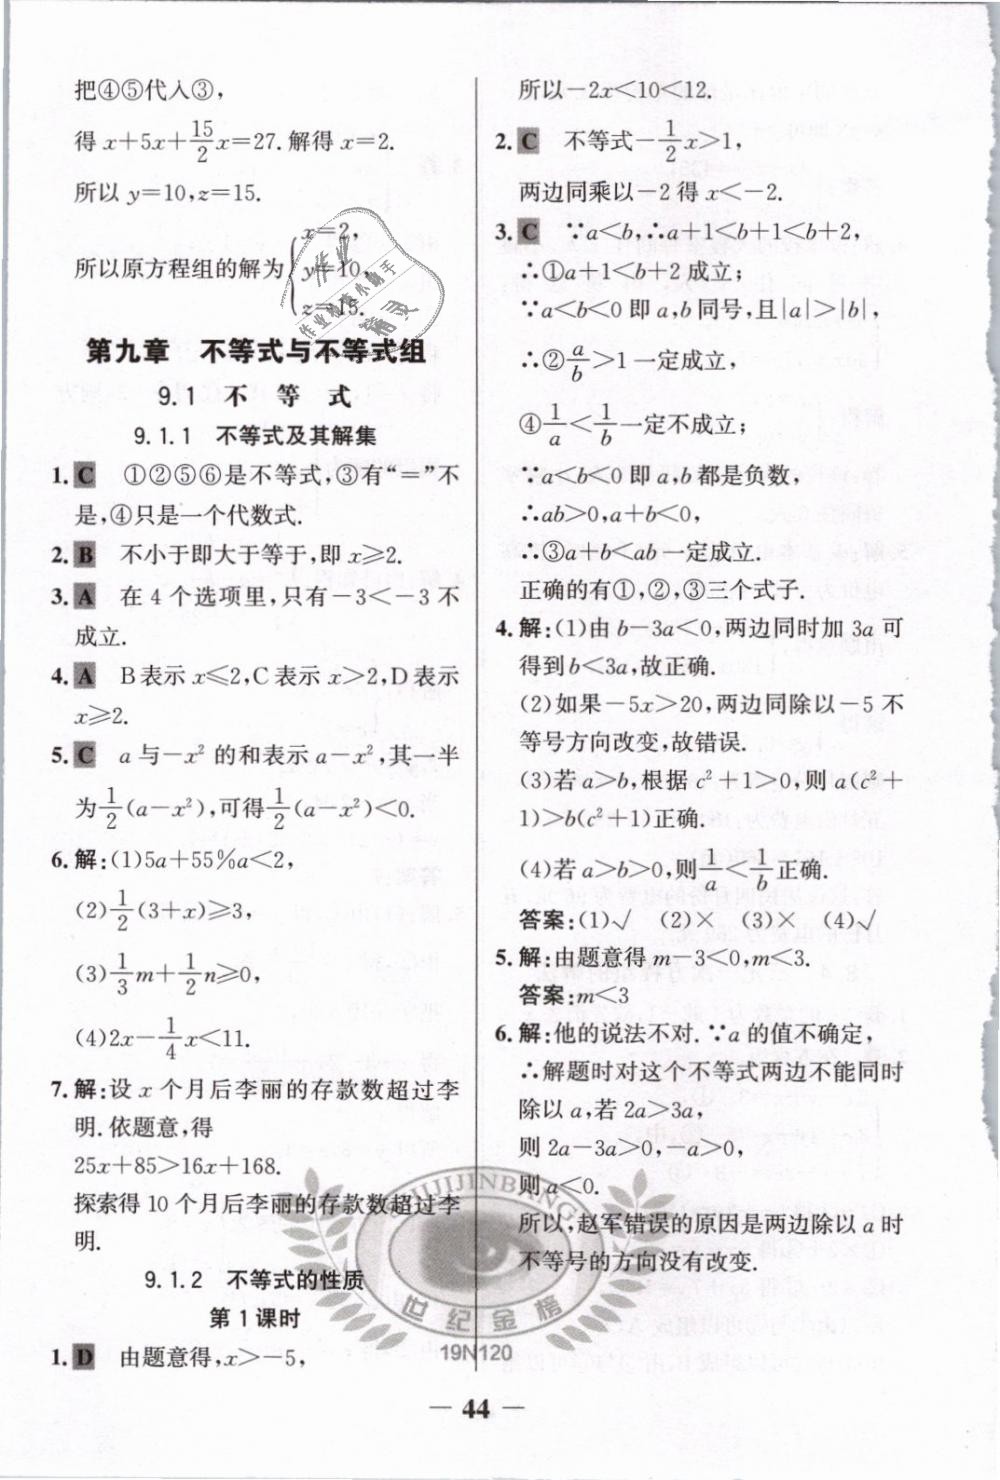 把④⑤代入③，
得 x+5x+15/2x=27. 解得 x=2.
所以 y=10,z=15.
所以原方程组的解为{x=2,
y=10,
z=15.
第九章 不等式与不等式组
9.1 不 等 式
9.1.1 不等式及其解集
1. C ①②⑤⑥是不等式,③有“=”不
是,④只是一个代数式.
2. B 不小于即大于等于,即 x≥2.
3. A 在 4 个选项里,只有-3<-3 不
成立.
4. A B表示 x≤2,C表示 x>2,D表示
x≥2.
5. C a 与-x² 的和表示 a-x²,其一半
为1/2(a-x²),可得1/2(a-x²)<0.
6. 解:(1)5a+55%a<2,
(2)1/2(3+x)≥3,
(3)1/3m+1/2n≥0,
(4)2x-1/4x<11.
7. 解:设 x 个月后李丽的存款数超过李
明.依题意,得
25x+85>16x+168.
探索得 10 个月后李丽的存款数超过李
明.
9.1.2 不等式的性质
第 1 课时
1. D 由题意得,x>-5,
所以-2x<10<12.
2. C 不等式-1/2x>1,
两边同乘以-2 得 x<-2.
3. C ∵a<b,∴a+1<b+1<b+2,
∴①a+1<b+2 成立;
∵a<b<0 即 a,b 同号,且|a|>|b|,
∴②a/b>1 一定成立,
④1/a<1/b一定不成立;
∵a<b<0 即 a,b 都是负数,
∴ab>0,a+b<0,
∴③a+b<ab 一定成立.
正确的有①,②,③三个式子.
4. 解:(1)由 b-3a<0,两边同时加 3a 可
得到 b<3a,故正确.
(2)如果-5x>20,两边同除以-5 不
等号方向改变,故错误.
(3)若 a>b,根据 c²+1>0,则 a(c²+
1)>b(c²+1)正确.
(4)若 a>b>0,则1/a<1/b正确.
答案:(1)√ (2)× (3)× (4)√
5. 解:由题意得 m-3<0,m<3.
答案:m<3
6. 解:他的说法不对.∵a 的值不确定,
∴解题时对这个不等式两边不能同时
除以 a,若 2a>3a,
则 2a-3a>0,-a>0,
则 a<0.
所以,赵军错误的原因是两边除以 a 时
不等号的方向没有改变.
SHIJIJINBANG
世纪金榜
19N120
— 44 —